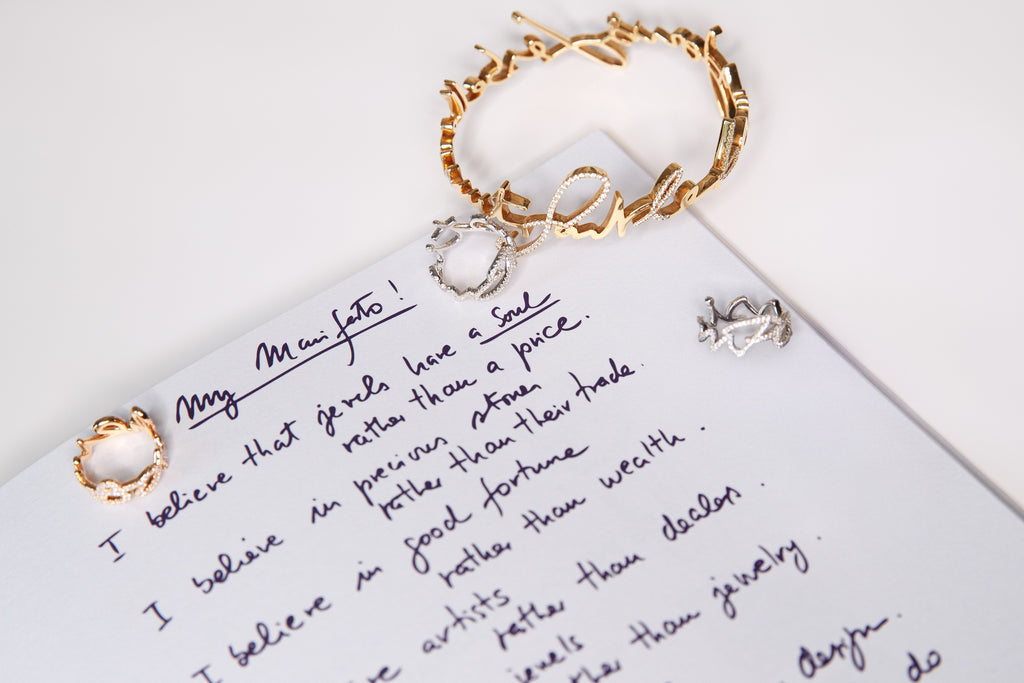 My Manifesto!
I believe that jewels have a soul
rather than a price.
I believe in precious stones
rather than their trade.
I believe in good fortune
rather than wealth.
artists
rather than dealers.
jewels
than jewelry.
design.
do